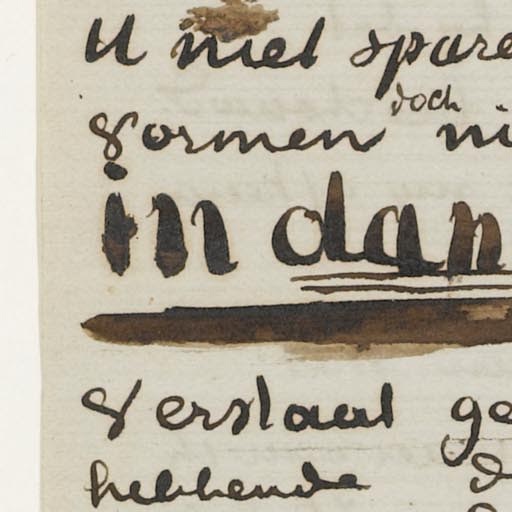 U niet spare
doch
Vormen ni
in dan
Verslaat ge
hebbende d